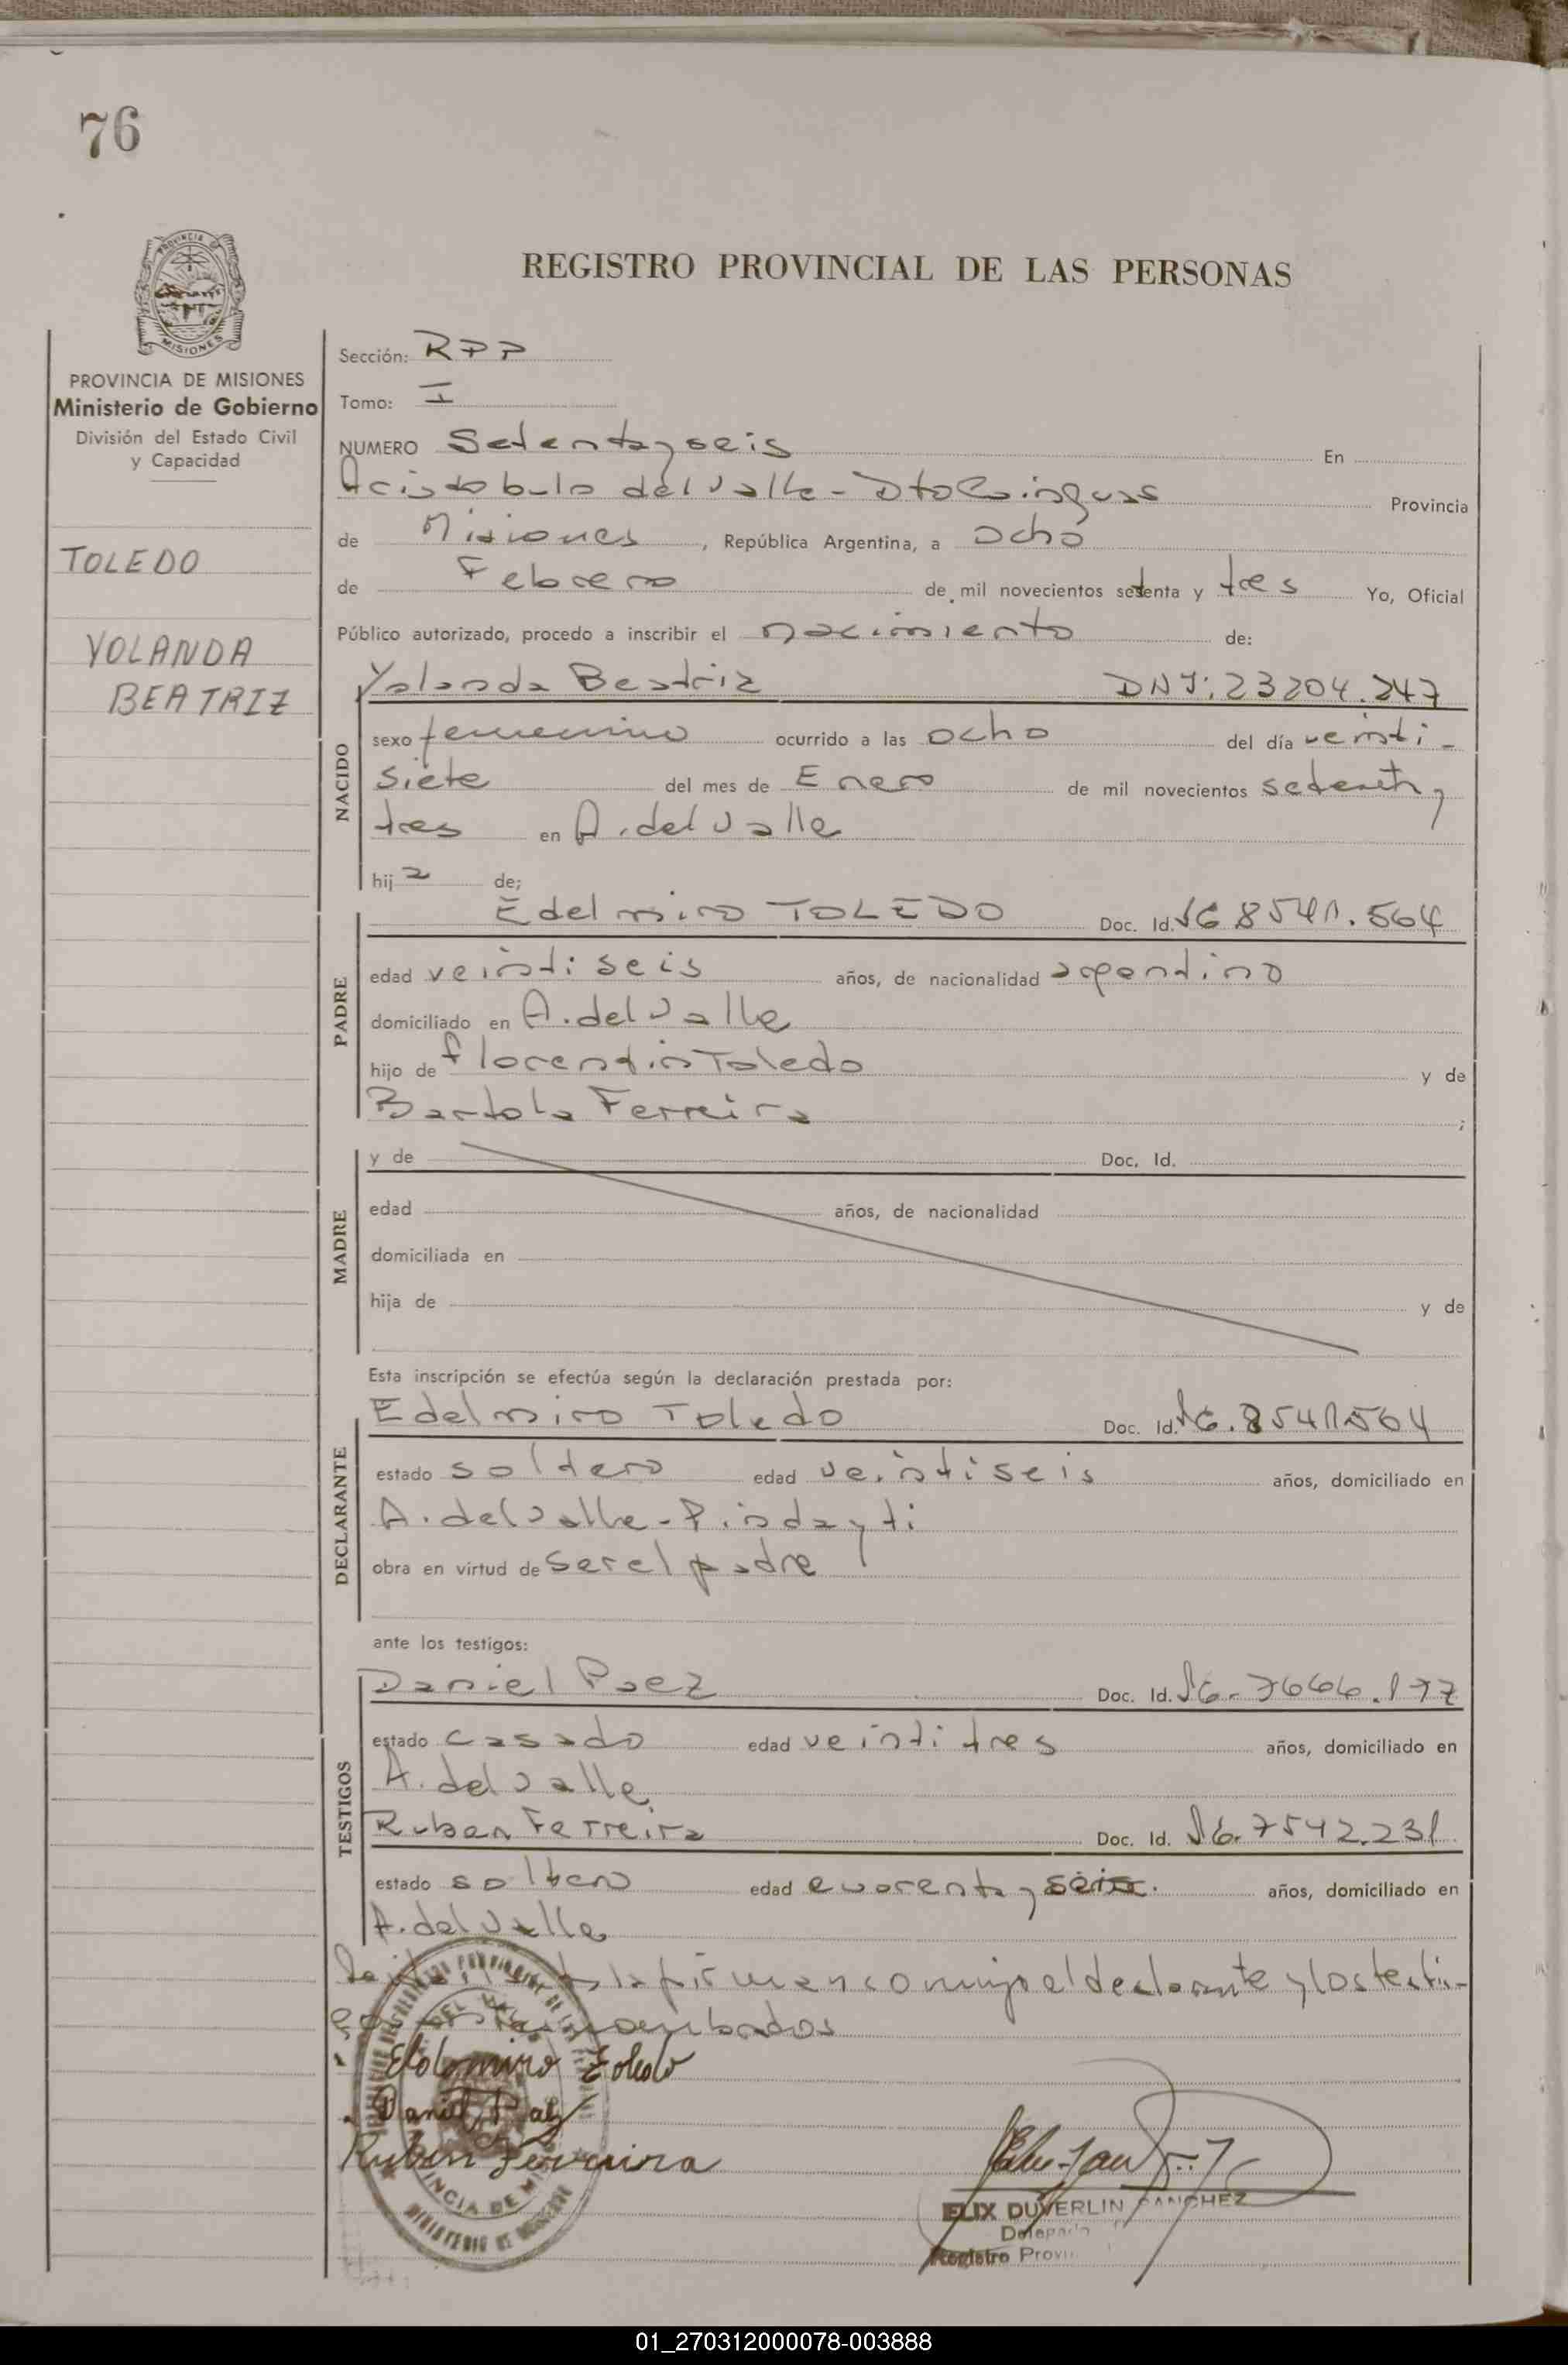 76
REGISTRO PROVINCIAL DE LAS PERSONAS
MISIONES
PROVINCIA DE MISIONES
Ministerio de Gobierno
División del Estado Civil
y Capacidad
TOLEDO
YOLANDA
BEATRIZ
Sección: RPP
Tomo: I
NUMERO Setenta y seis En
Aristobulo del Valle - Dto Cainguas Provincia
de Misiones, República Argentina, a Ocho
de Febrero de mil novecientos setenta y tres Yo, Oficial
Público autorizado, procedo a inscribir el nacimiento de:
Yolanda Beatriz DNI: 23204.247
NACIDO
sexo femenino ocurrido a las ocho del día veinti-
siete del mes de Enero de mil novecientos setenta y
tres en A. del Valle
hija de;
PADRE
Edelmiro TOLEDO Doc. Id. 8541.564
edad veintiseis años, de nacionalidad argentino
domiciliado en A. del Valle
hijo de Florentin Toledo y de
Bartola Ferreira ;
MADRE
y de Doc. Id.
edad años, de nacionalidad
domiciliada en
hija de y de
Esta inscripción se efectúa según la declaración prestada por:
DECLARANTE
Edelmiro Toledo Doc. Id. 8541564
estado soltero edad veintiseis años, domiciliado en
A. del Valle - Pindayti
obra en virtud de Ser el padre
ante los testigos:
TESTIGOS
Daniel Paez Doc. Id. 7666.177
estado casado edad veintitres años, domiciliado en
A. del Valle
Ruben Ferreira Doc. Id. 7542.231
estado soltero edad cuarenta y seis. años, domiciliado en
A. del Valle
la firman conmigo el declarante y los testi-
gos
Edelmiro Toledo
Daniel Paez
Ruben Ferreira
ELIX DUVERLIN SANCHEZ
Delegado
Registro Provi
01_270312000078-003888